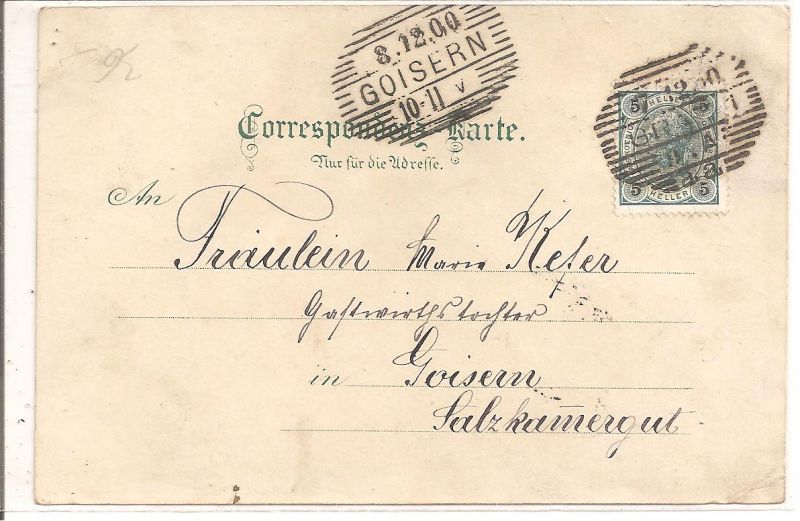 8.12.00
GOISERN
10-11 V
Correspondenz-Karte.
Nur für die Adresse.
5 HELLER 5
5 HELLER 5
An
Fräulein Marie Keter
Gastwirthstochter
in Goisern
Salzkam̅ergut